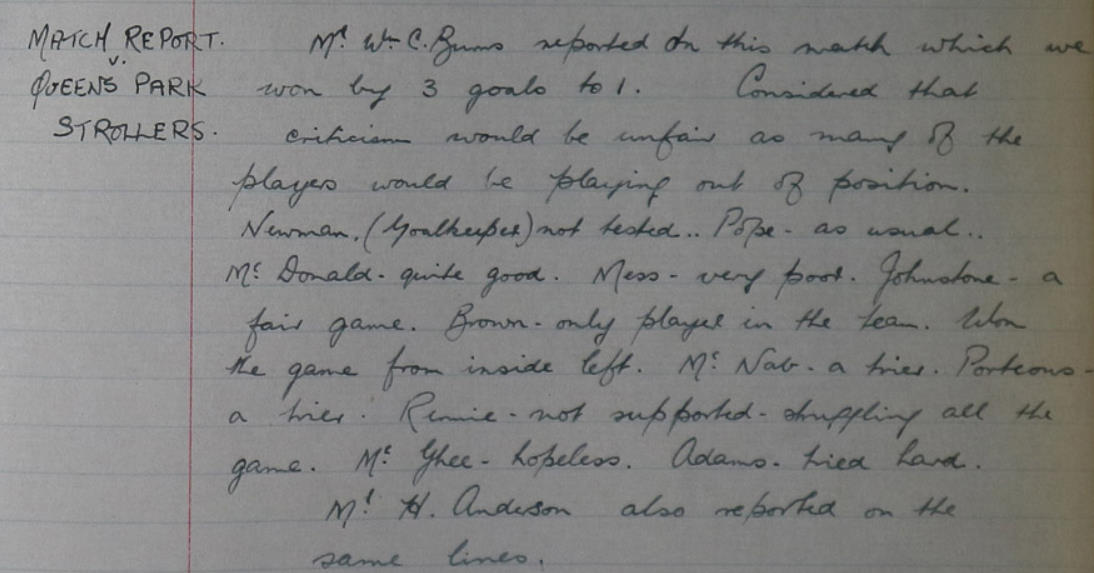 MATCH REPORT.
v.
QUEENS PARK
STROLLERS.
Mr Wm C. Burns reported on this match which we
won by 3 goals to 1. Considered that
criticism would be unfair as many of the
players would be playing out of position.
Newman. (Goalkeeper) not tested.. Pope - as usual..
Mc Donald - quite good. Mess - very poor. Johnstone - a
fair game. Brown - only player in the team. Won
the game from inside left. Mc Nab - a trier. Porteous -
a trier. Rennie - not supported - struggling all the
game. Mc Ghee - hopeless. Adams - tried hard.
Mr H. Anderson also reported on the
same lines.